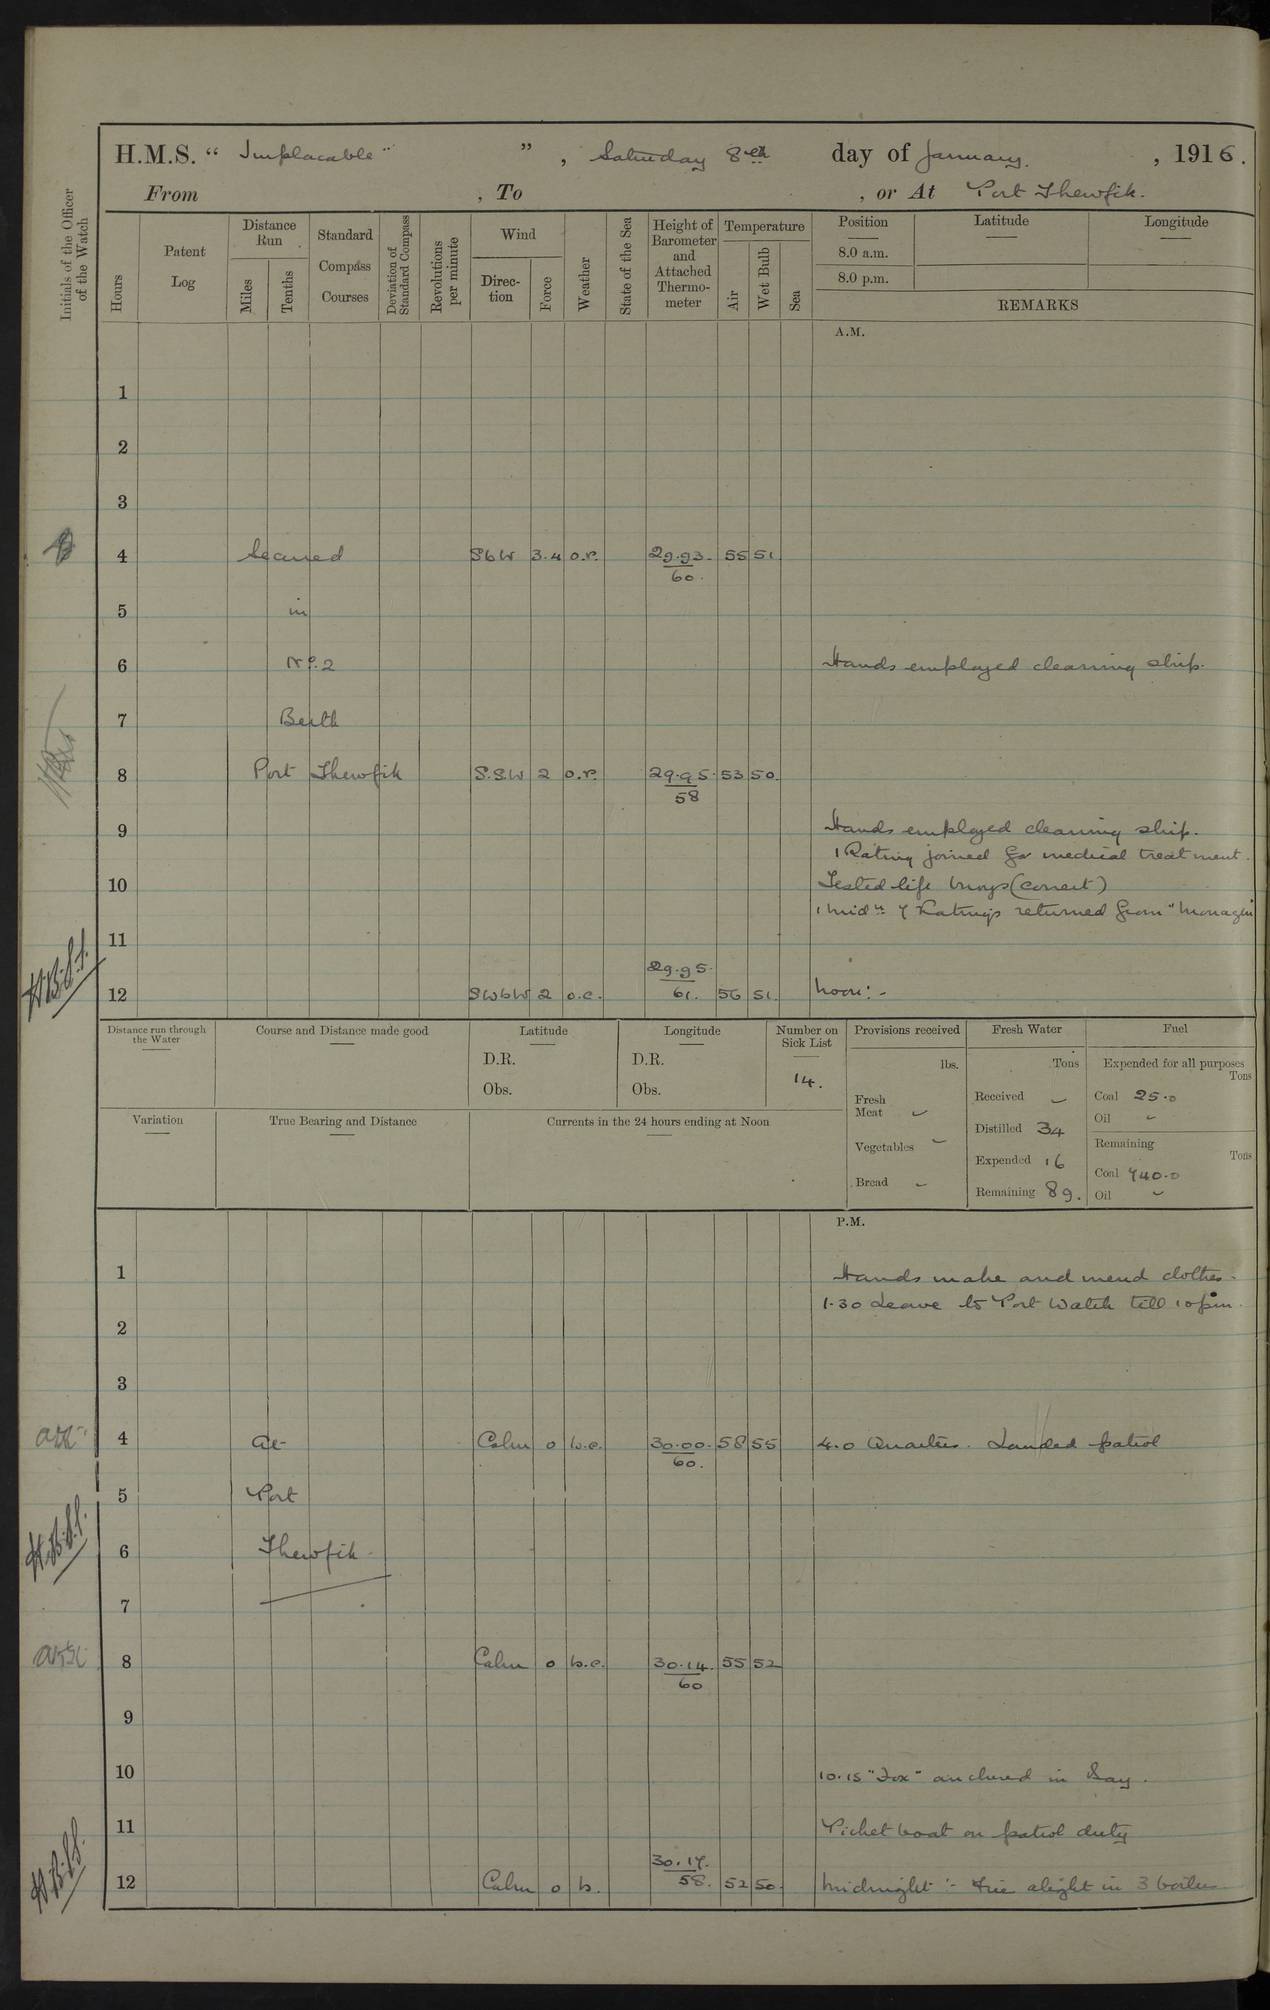 H.M.S. “ Implacable ” , Saturday 8th day of January. , 1916.
From , To , or At Port Thewfik.
Initials of the Officer of the Watch
Hours
Patent Log
Distance Run
Miles
Tenths
Standard Compass Courses
Deviation of Standard Compass
Revolutions per minute
Wind
Direction
Force
Weather
State of the Sea
Height of Barometer and Attached Thermometer
Temperature
Air
Wet Bulb
Sea
Position
8.0 a.m.
8.0 p.m.
Latitude
Longitude
REMARKS
A.M.
1
2
3
4 Secured SbW 3.4 o.r. 29.93. 55 51
60.
5 in
6 No. 2 Hands employed cleaning ship.
7 Berth
8 Port Thewfik S.S.W 2 o.r. 29.95. 53 50.
58
9 Hands employed cleaning ship.
1 Rating joined for medical treatment.
10 Tested life buoys (correct)
1 midn 7 Ratings returned from "Monagin"
11
H.B.S.S.
29.95.
12 SWbW 2 o.c. 61. 56 51. Noon:-
Distance run through the Water
Course and Distance made good
Latitude
D.R.
Obs.
Longitude
D.R.
Obs.
Number on Sick List
14.
Provisions received
lbs.
Fresh Meat -
Vegetables -
Bread -
Fresh Water
Tons
Received -
Distilled 34
Expended 16
Remaining 89.
Fuel
Expended for all purposes
Tons
Coal 25.0
Oil -
Remaining
Tons
Coal 740.0
Oil -
Variation
True Bearing and Distance
Currents in the 24 hours ending at Noon
P.M.
1 Hands make and mend clothes.
1.30 Leave to Port Watch till 10 pm.
2
3
4 At Calm 0 b.c. 30.00. 58 55 4.0 Quarters. Landed patrol
60.
5 Port
H.B.S.S.
6 Thewfik.
7
8 Calm 0 b.c. 30.14. 55 52
60
9
10 10.15 "Fox" anchored in Bay.
11 Picket boat on patrol duty
30.17.
H.B.S.S.
12 Calm 0 b. 58. 52 50. Midnight :- Fire alight in 3 boilers